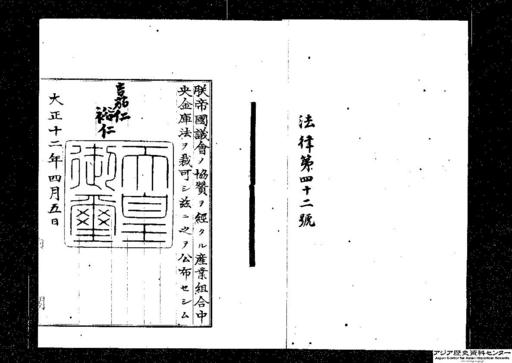 法律第四十二號
朕帝國議會ノ協贊ヲ經タル產業組合中
央金庫法ヲ裁可シ玆ニ之ヲ公布セシム
嘉仁
裕仁
天皇
御璽
大正十二年四月五日
アジア歴史資料センター
Japan Center for Asian Historical Records